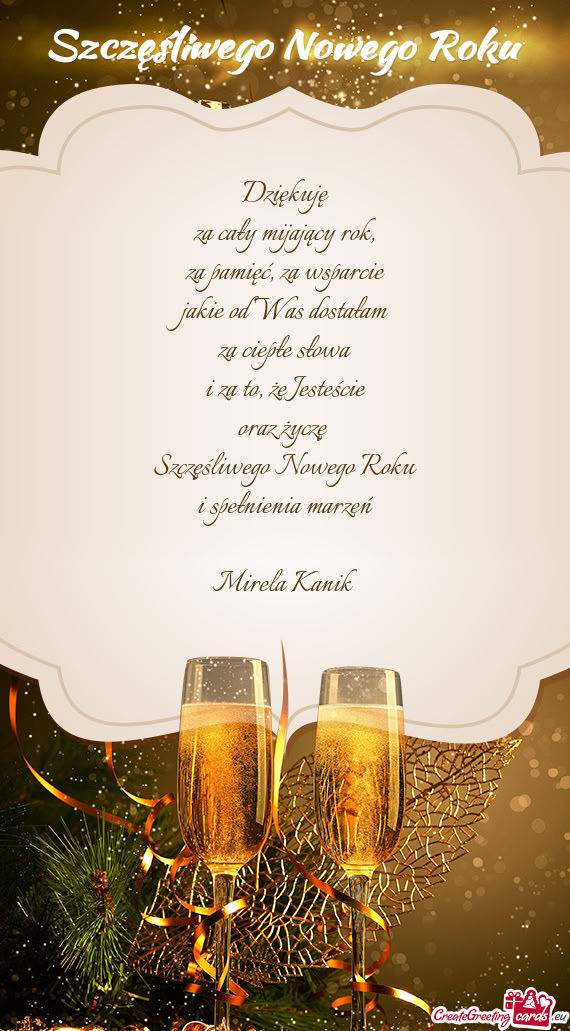 Szczęśliwego Nowego Roku
Dziękuję
za cały mijający rok,
za pamięć, za wsparcie
jakie od Was dostałam
za ciepłe słowa
i za to, że Jesteście
oraz życzę
Szczęśliwego Nowego Roku
i spełnienia marzeń
Mirela Kanik
CreateGreetingcards.eu